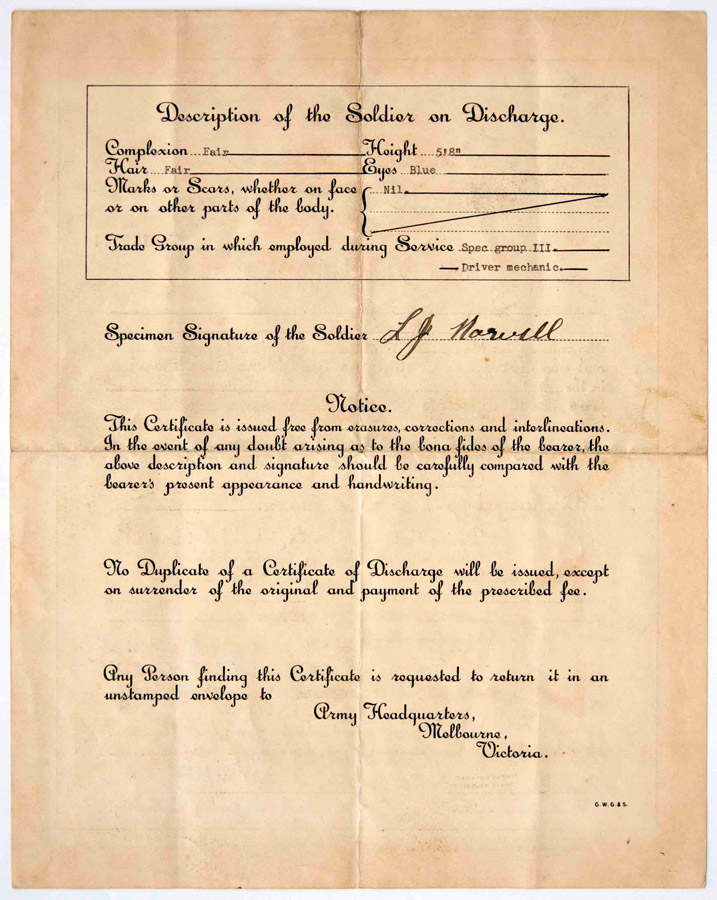 Description of the Soldier on Discharge.
Complexion Fair Height 5'8"
Hair Fair Eyes Blue
Marks or Scars, whether on face Nil.
or on other parts of the body.
Trade Group in which employed during Service Spec group III.
Driver mechanic.
Specimen Signature of the Soldier L J Norvill
Notice.
This Certificate is issued free from erasures, corrections and interlineations.
In the event of any doubt arising as to the bona fides of the bearer, the
above description and signature should be carefully compared with the
bearer's present appearance and handwriting.
No Duplicate of a Certificate of Discharge will be issued, except
on surrender of the original and payment of the prescribed fee.
Any Person finding this Certificate is requested to return it in an
unstamped envelope to
Army Headquarters,
Melbourne,
Victoria.
G.W.G.&S.